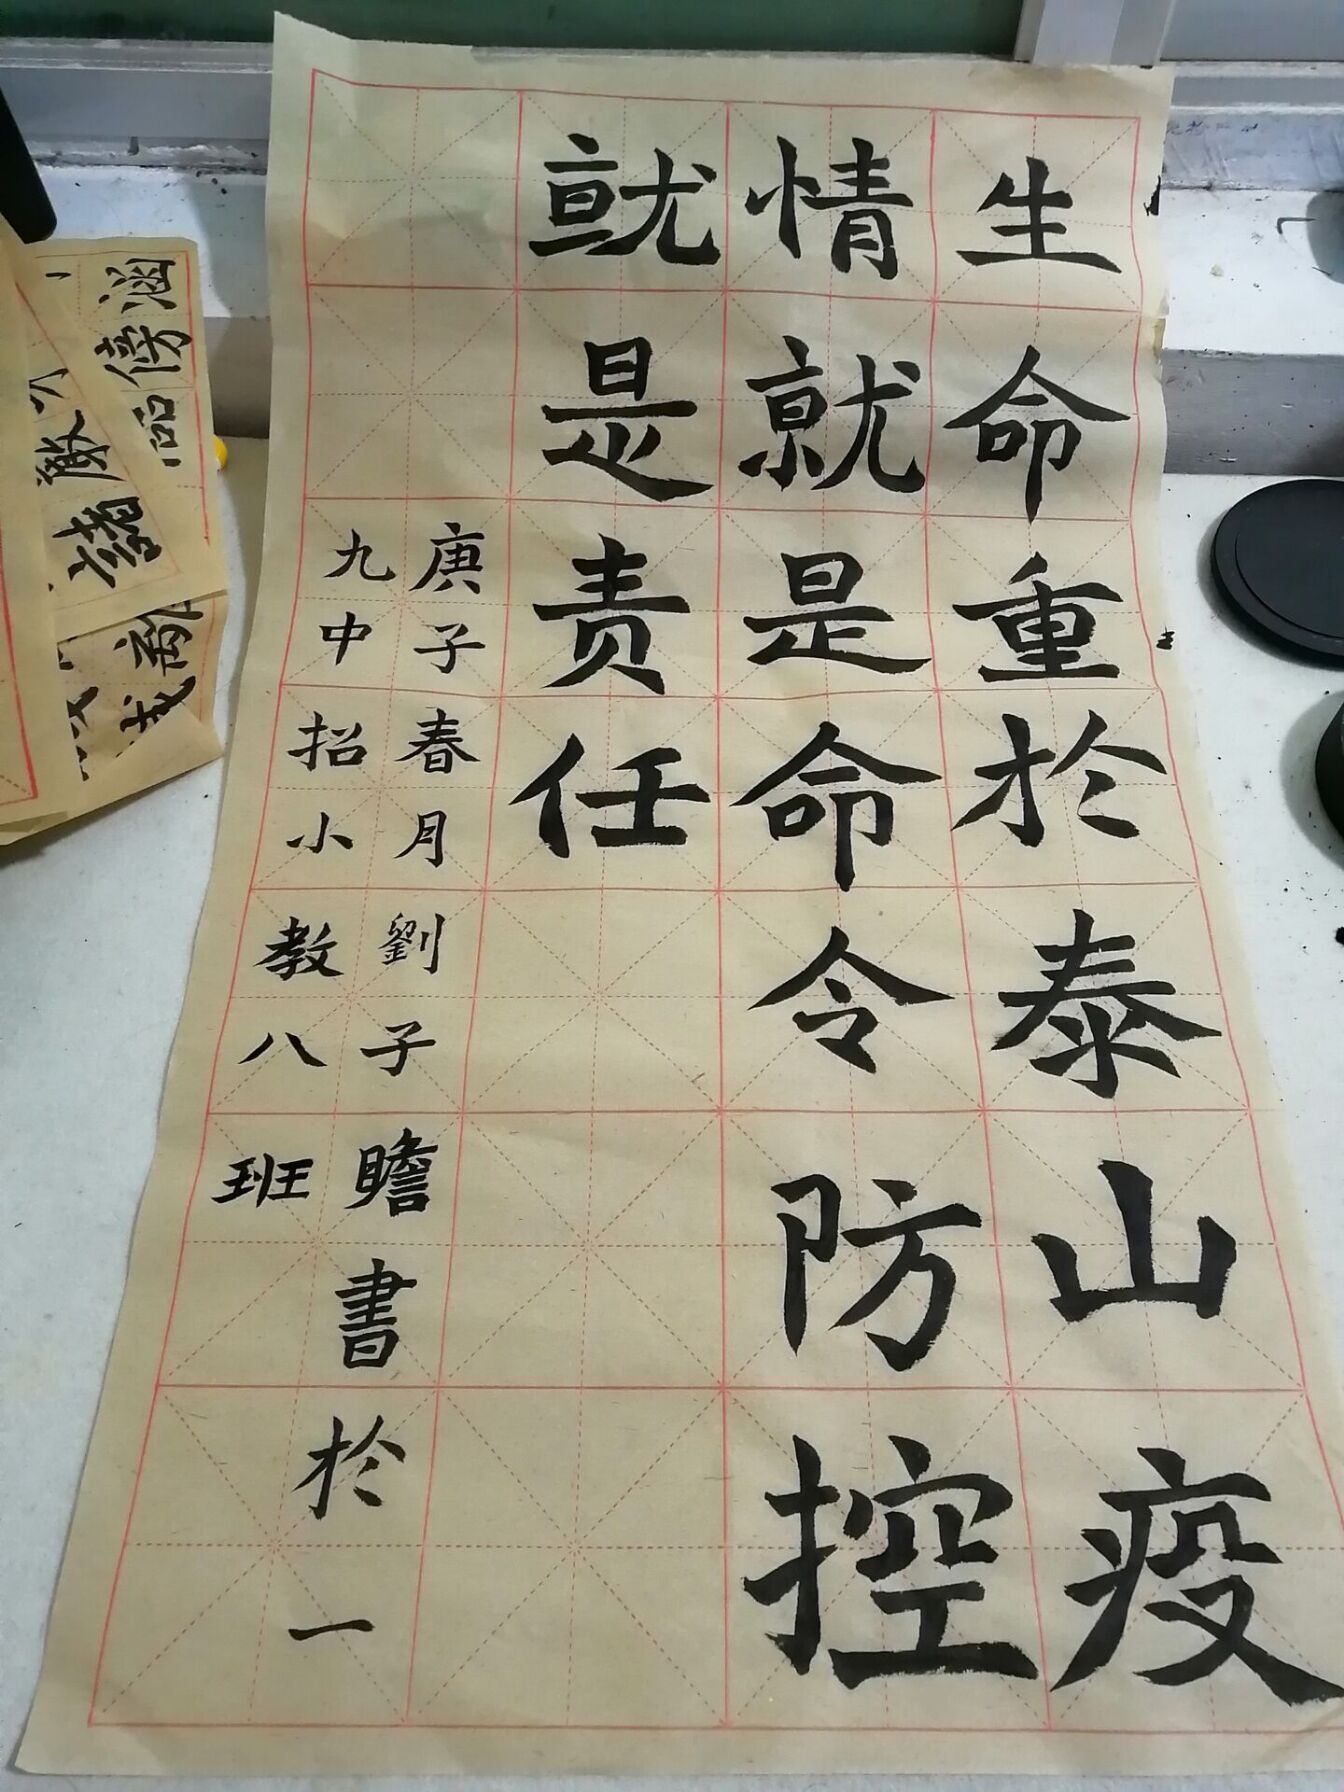 生命重於泰山疫
情就是命令防控
就是责任
庚子春月劉子瞻書於一
九中招小教八班
涵傍